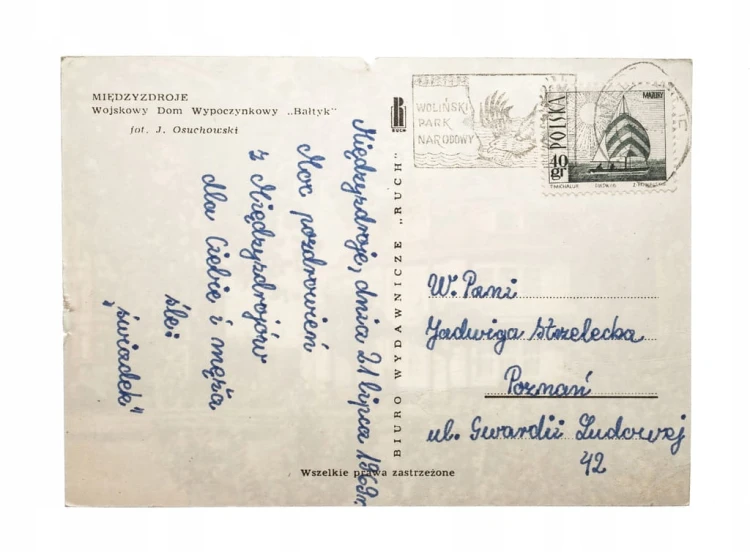 MIĘDZYZDROJE
Wojskowy Dom Wypoczynkowy „Bałtyk"
fot. J. Osuchowski
Międzyzdroje, dnia 21 lipca 1969r.
Moc pozdrowień
z Międzyzdrojów
dla Ciebie i męża
śle:
„świadek"
RUCH
BIURO WYDAWNICZE „RUCH"
WOLIŃSKI
PARK
NARODOWY
POLSKA
40 gr
MARINY
W. Pani
Jadwiga Strzelecka
Poznań
ul. Gwardii Ludowej
42
Wszelkie prawa zastrzeżone